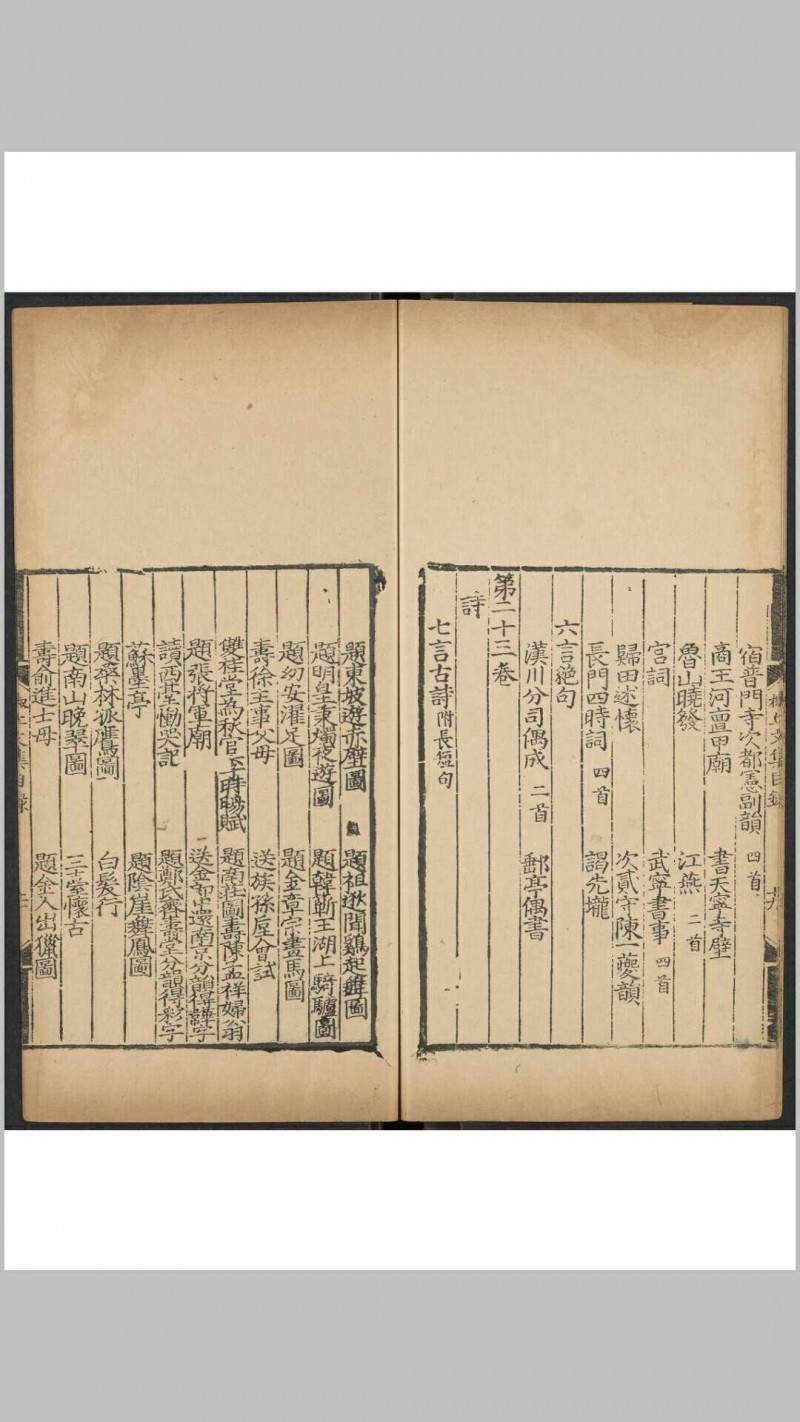 宿普門寺次都憲副韻 四首
商王河亶甲廟 書天寧寺壁
魯山曉發 江燕 二首
宮詞 武寧書事 四首
歸田述懷 次貳守陳一夔韻
長門四時詞 四首 謁先壠
六言絕句
漢川分司偶成 二首 鄱亭偶書
第二十三卷
詩
七言古詩 附長短句
題東坡遊赤壁圖 題祖逖聞雞起舞圖
題明皇秉燭夜遊圖 題韓蘄王湖上騎驢圖
題幼安濯足圖 題金章宗畫馬圖
壽徐主事父母 送族孫垕會試
雙桂堂為秋官至時暘賦 題南莊圖壽陳孟祥婦翁
題張將軍廟 送金還南京分韻得字
讀西臺慟哭記 題鄭氏齊壽堂分韻得彩字
蘇墨亭 題陰崖舞鳳圖
題林派鷹圖 白髮行
題南山晚翠圖 三堂懷古
壽俞進士母 題金人出獵圖
文集目錄